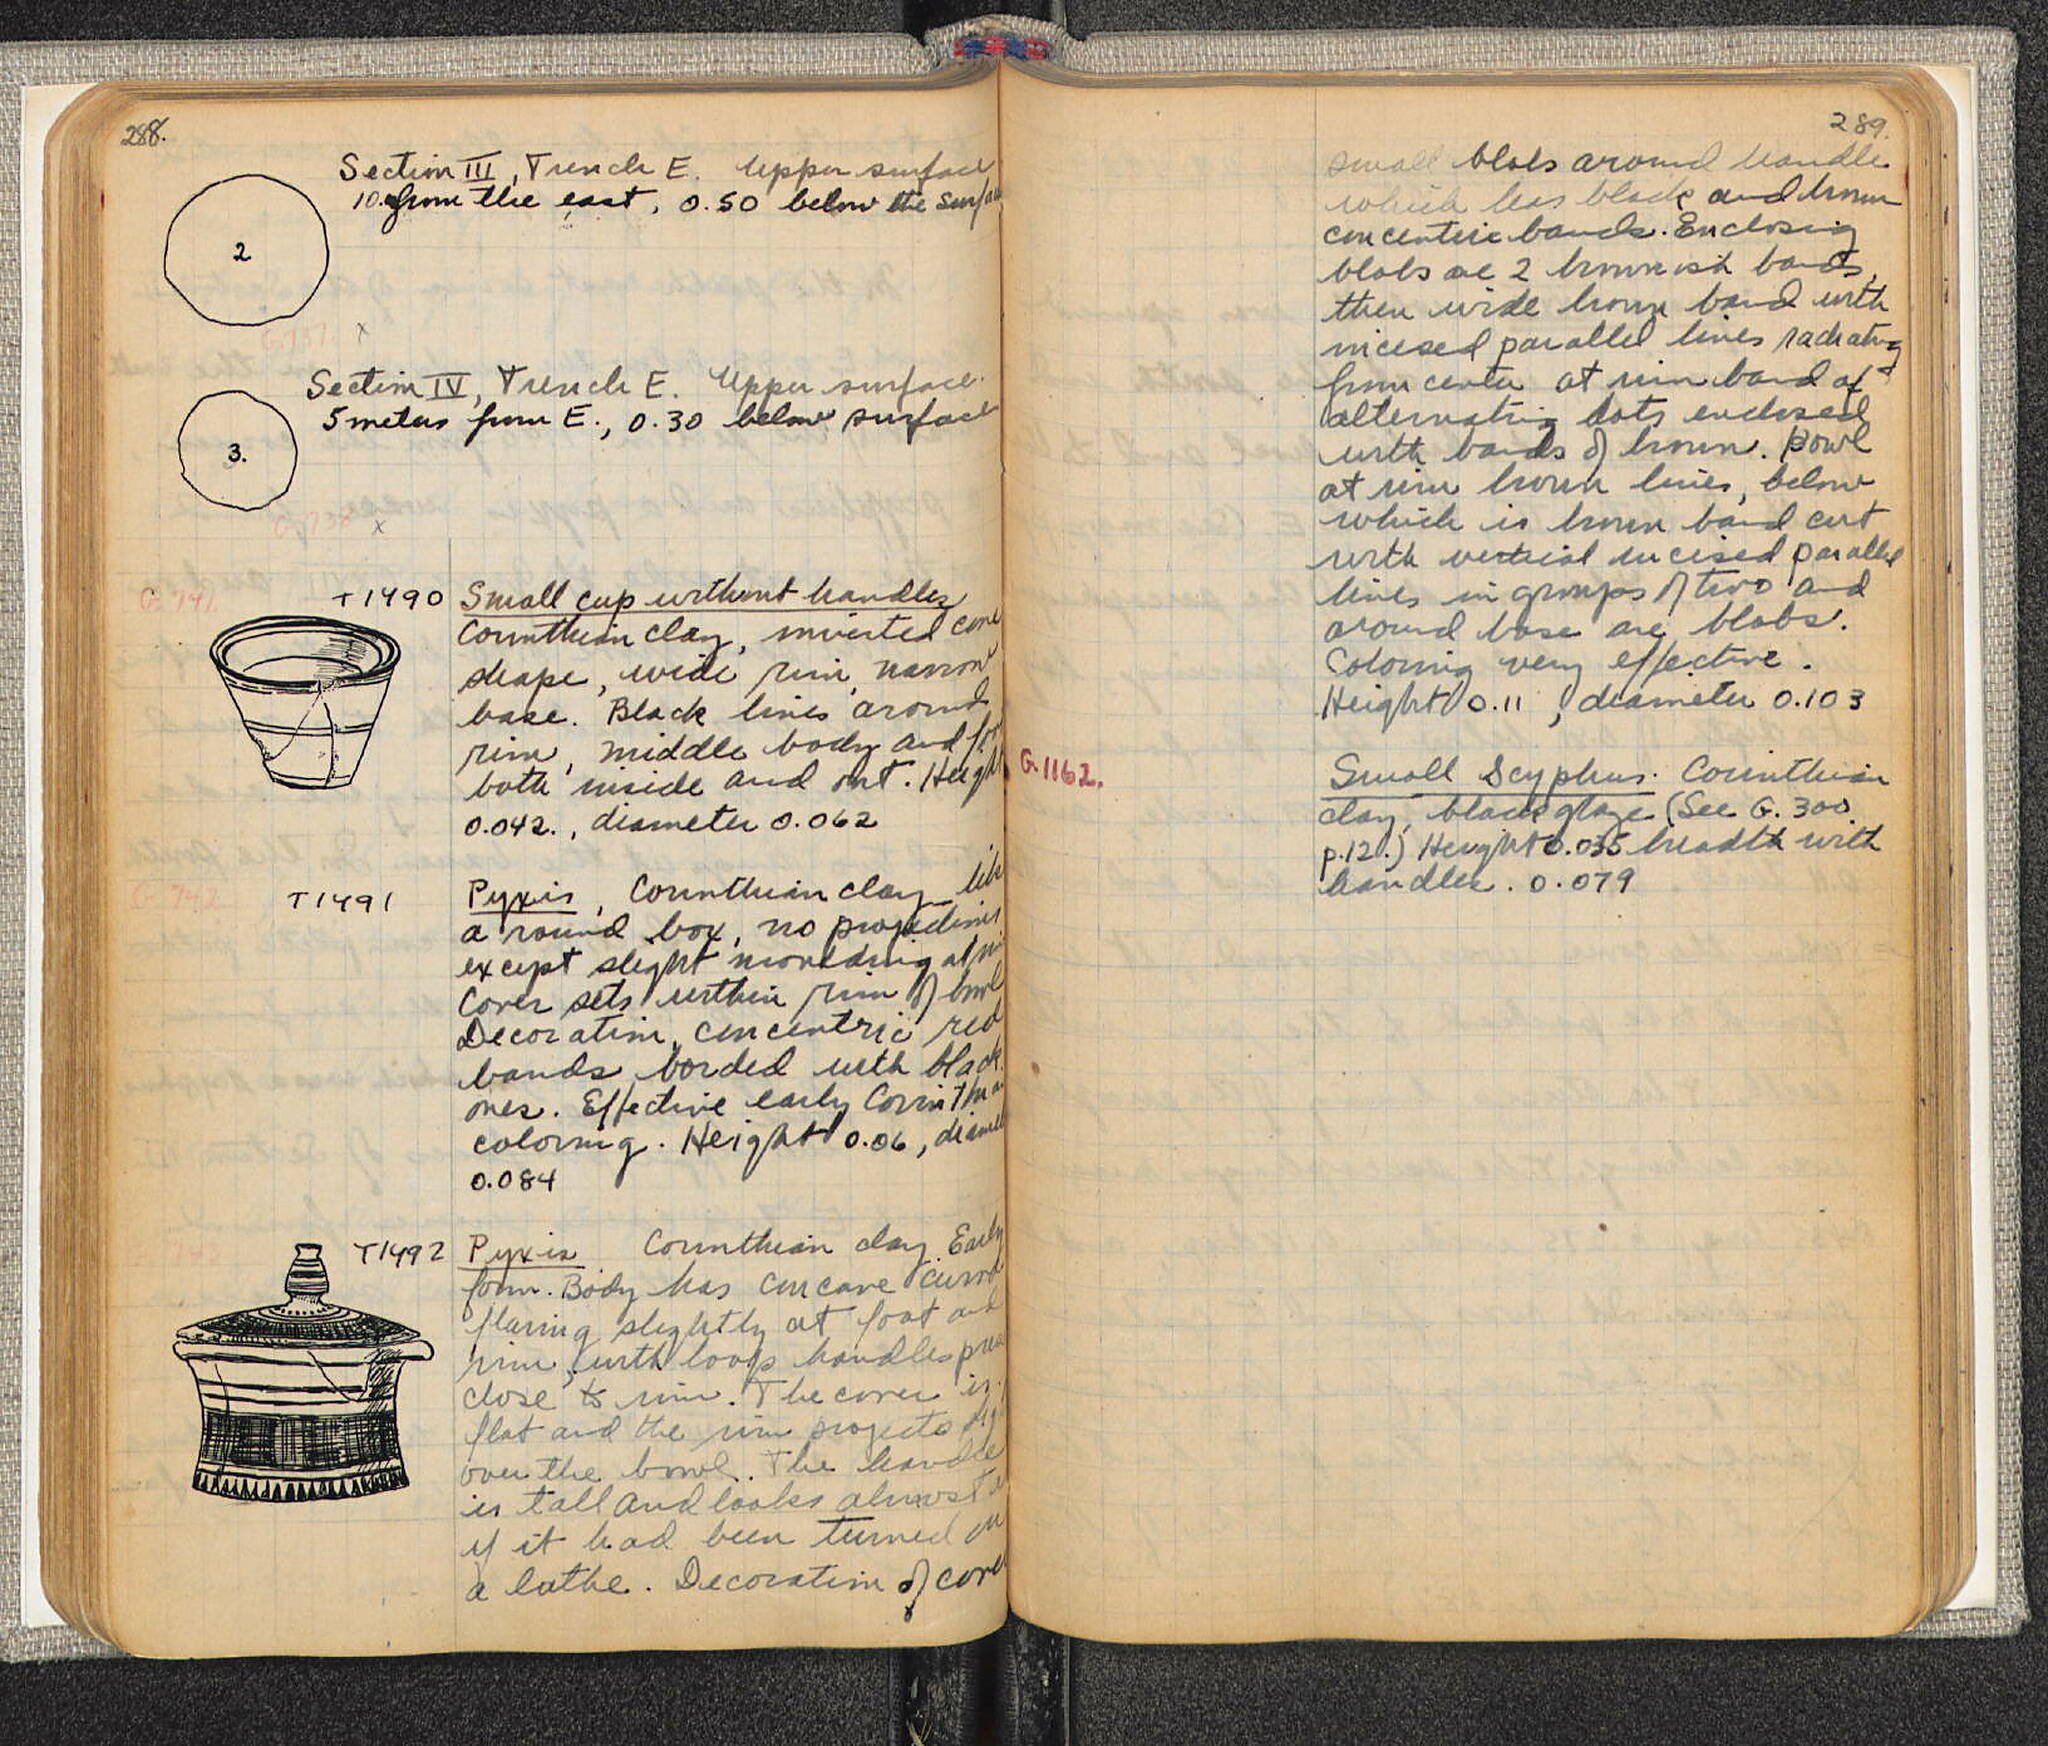 288.
Section III, Trench E. Upper surface
10. from the east, 0.50 below the surface
2
G.737 x
Section IV, Trench E. Upper surface.
5 meters from E., 0.30 below surface
3.
G.738 x
G.741. T1490 Small cup without handles
Corinthian clay, inverted cone
shape, wide rim, narrow
base. Black lines around
rim, middle body and
both inside and out. Height
0.042., diameter 0.062
G.742 T1491 Pyxis, Corinthian clay like
a round box, no projections
except slight moulding at
Cover sets within rim of bowl
Decoration, concentric red
bands borded with black
ones. Effective early Corinthian
coloring. Height 0.06, diameter
0.084
T1492 Pyxis Corinthian clay. Early
form. Body has concave curve
flaring slightly at foot and
rim, with loops handles
close to rim. The cover is
flat and the rim projects
over the bowl. The handle
is tall and looks almost as
if it had been turned on
a lathe. Decoration of cover
289.
small blobs around handle
which has black and brown
concentric bands. Enclosing
blobs are 2 brownish bands,
then wide brown band with
incised parallel lines radiating
from center at rim band of
alternating dots enclosed
with bands of brown. Bowl
at rim brown lines, below
which is brown band cut
with vertical incised parallel
lines in groups of two and
around base are blobs.
Coloring very effective.
Height 0.11, diameter 0.103
G.1162. Small Scyphus. Corinthian
clay, black glaze (See G. 300
p.12.) Height 0.035 breadth with
handles. 0.079